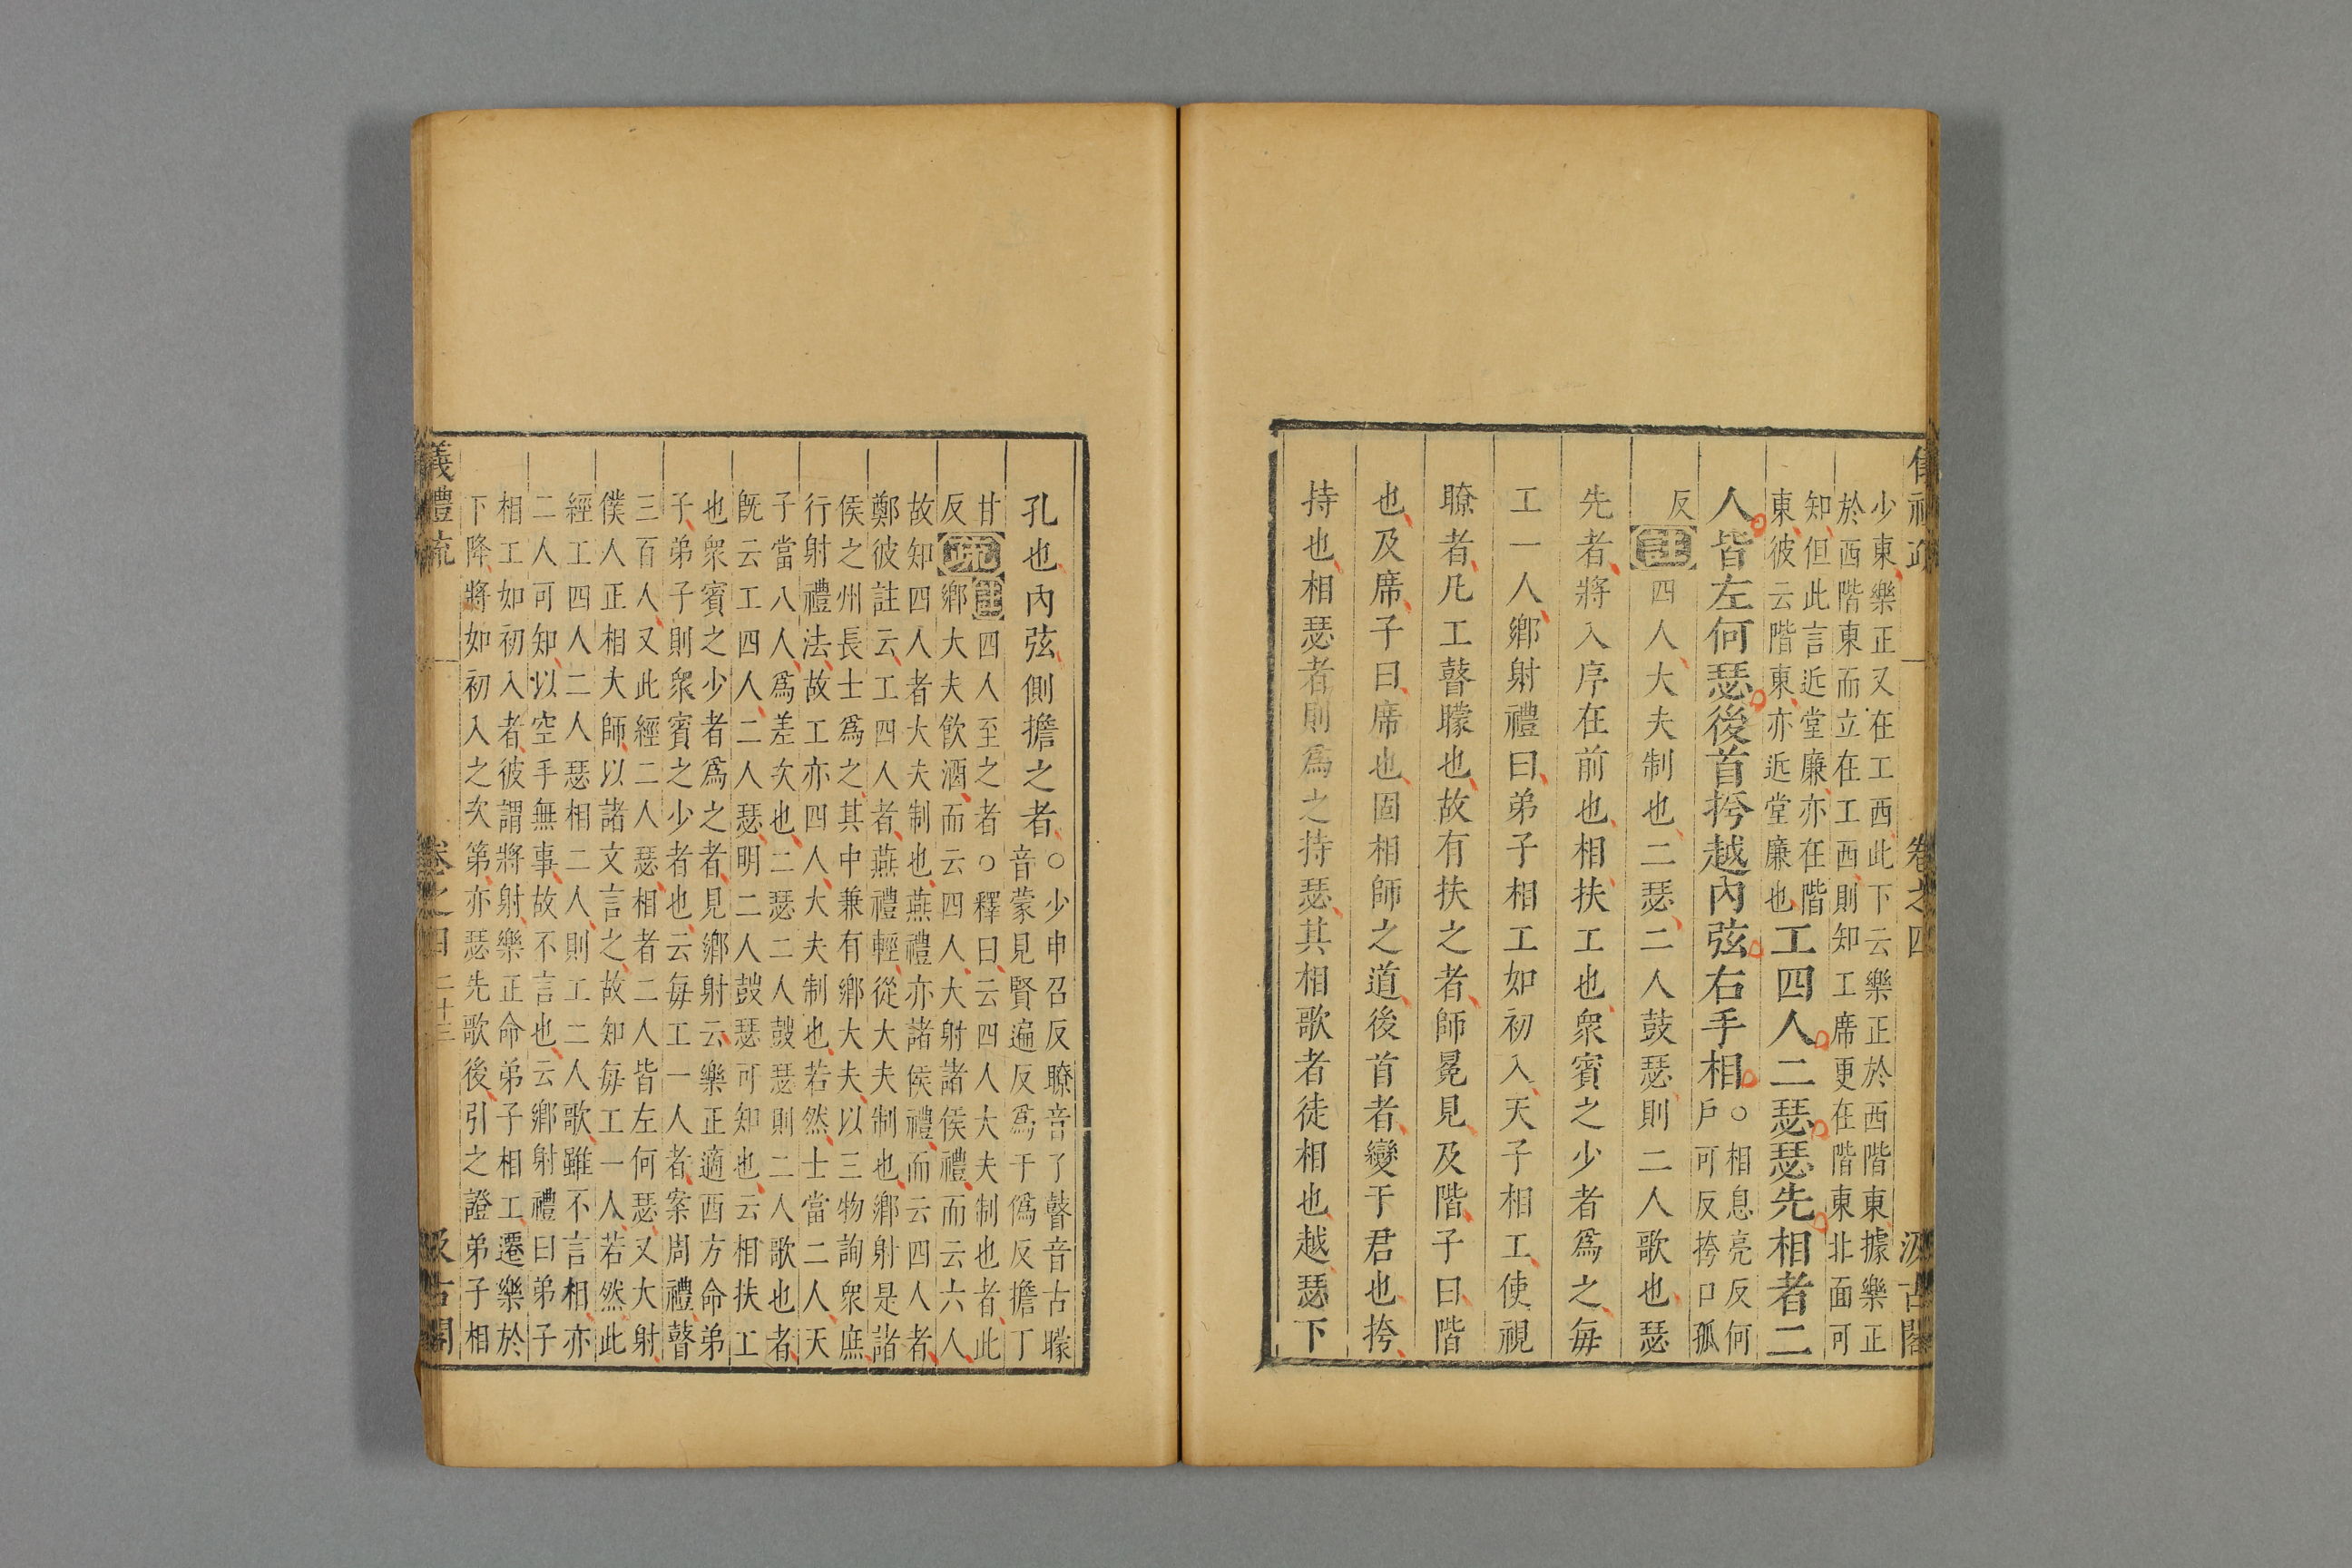 少東樂正又在工西此下云樂正於西階東據樂正
於西階東而立在工西則知工席更在階東北面可
知但此言近堂廉亦在階
東彼云階東亦近堂廉也
工四人二瑟瑟先相者二
人皆左何瑟後首挎越內弦右手相
○相息亮反何
戶可反挎口孤
反
註四人大夫制也二瑟二人鼓瑟則二人歌也瑟
先者將入序在前也相扶工也衆賓之少者爲之每
工一人鄉射禮曰弟子相工如初入天子相工使視
瞭者凡工瞽矇也故有扶之者師冕見及階子曰階
也及席子曰席也固相師之道後首者變于君也挎
持也相瑟者則爲之持瑟其相歌者徒相也越瑟下
卷之四
汲古閣
孔也內弦側擔之者
○少申召反瞭音了瞽音古矇
音蒙見賢遍反爲于僞反擔丁
甘
反
疏
註四人至之者○釋曰云四人大夫制也者此
鄉大夫飲酒而云四人大射諸侯禮而云六人
故知四人者大夫制也燕禮亦諸侯禮而云四人者
鄭彼註云工四人者燕禮輕從大夫制也鄉射是諸
侯之州長士爲之其中兼有鄉大夫以三物詢衆庶
行射禮法故工亦四人大夫制也若然士當二人天
子當八人爲差次也二瑟二人鼓瑟則二人歌也者
旣云工四人二人瑟明二人鼓瑟可知也云相扶工
也衆賓之少者爲之者見鄉射云樂正適西方命弟
子弟子則衆賓之少者也云每工一人者案周禮瞽
三百人又此經二人瑟相者二人皆左何瑟又大射
僕人正相大師以諸文言之故知每工一人若然此
經工四人二人瑟相二人則工二人歌雖不言相亦
二人可知以空手無事故不言也云鄉射禮曰弟子
相工如初入者彼謂將射樂正命弟子相工遷樂於
下降將如初入之次第亦瑟先歌後引之證弟子相
儀禮疏
卷之四
二十三
汲古閣